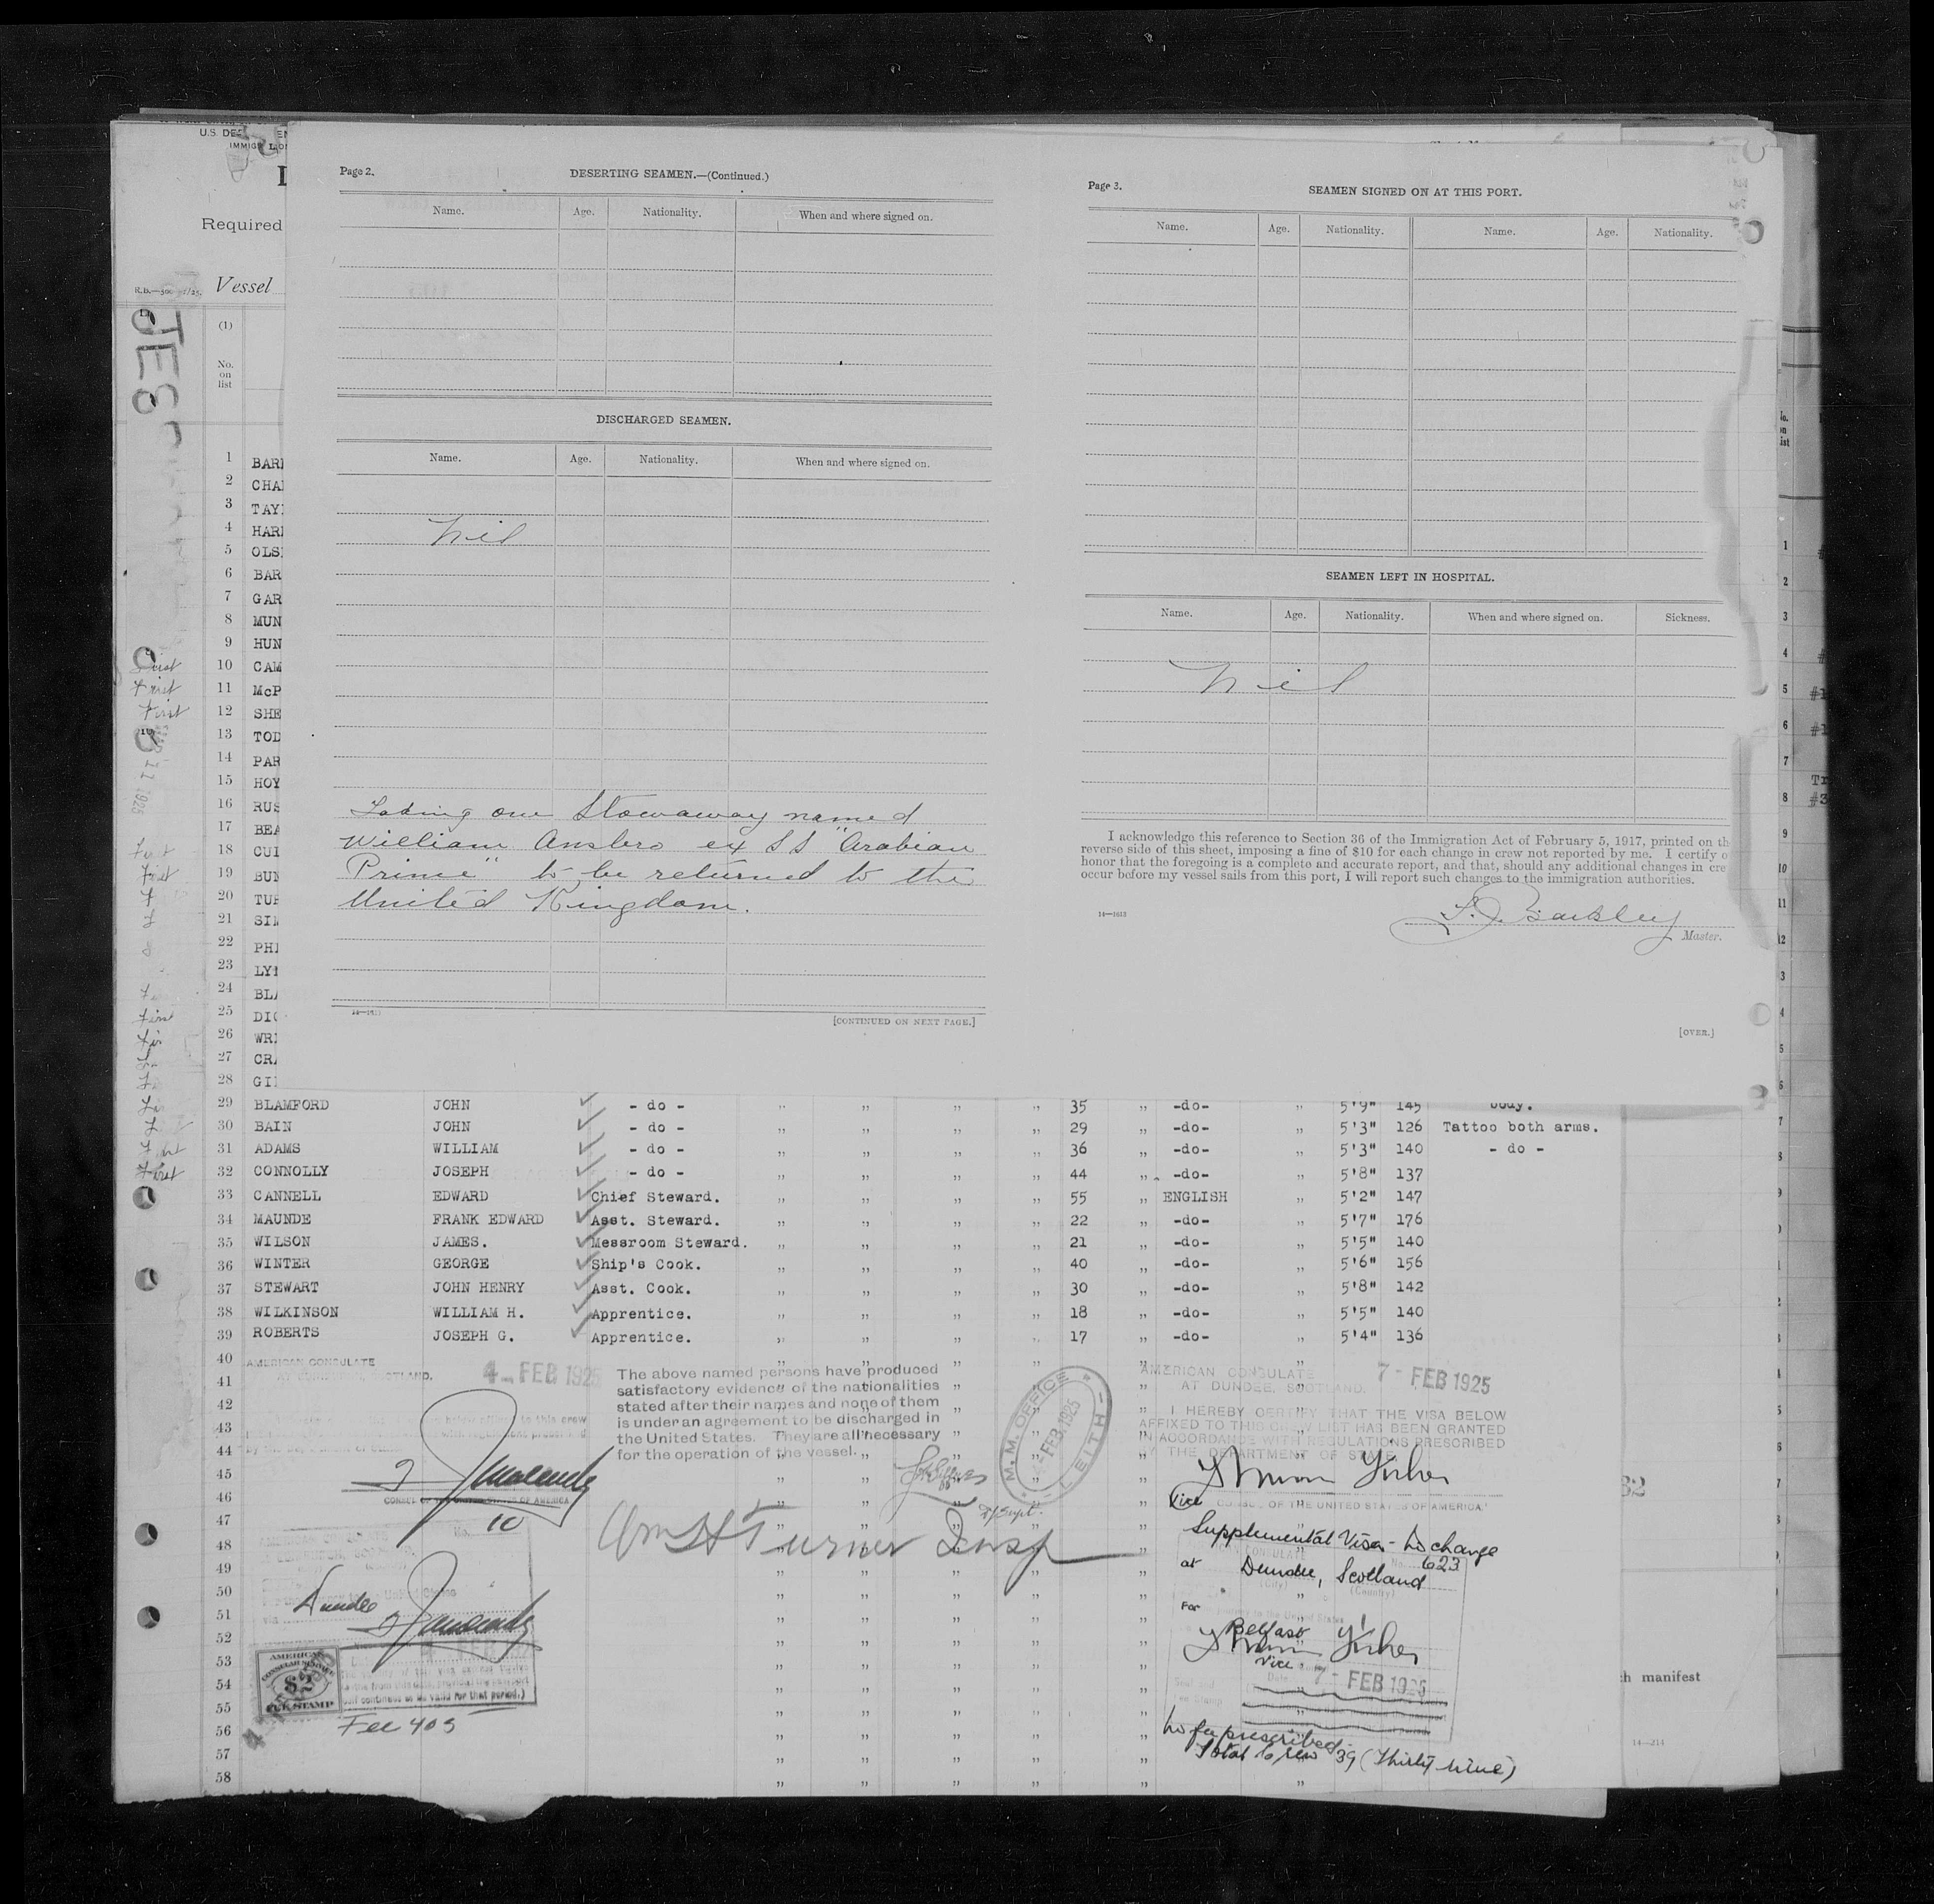 U.S. DE
IMMIG
Required
R.B.—500
Vessel
(1)
No.
on
list
Page 2.
DESERTING SEAMEN.—(Continued.)
Name. Age. Nationality. When and where signed on.
DISCHARGED SEAMEN.
Name. Age. Nationality. When and where signed on.
Nil
Taking one Stowaway named
William Anslero ex SS "Arabian
Prime" to be returned to the
United Kingdom.
[CONTINUED ON NEXT PAGE.]
Page 3.
SEAMEN SIGNED ON AT THIS PORT.
Name. Age. Nationality. Name. Age. Nationality.
SEAMEN LEFT IN HOSPITAL.
Name. Age. Nationality. When and where signed on. Sickness.
Nil
I acknowledge this reference to Section 36 of the Immigration Act of February 5, 1917, printed on th
reverse side of this sheet, imposing a fine of $10 for each change in crew not reported by me. I certify o
honor that the foregoing is a complete and accurate report, and that, should any additional changes in cre
occur before my vessel sails from this port, I will report such changes to the immigration authorities.
14—1613
Master.
[OVER.]
1 BAR
2 CHA
3 TAY
4 HAR
5 OLS
6 BAR
7 GAR
8 MUN
9 HUN
First 10 CAM
First 11 McP
First 12 SHE
13 TOD
14 PAR
15 HOY
16 RUS
17 BEA
18 CUI
First 19 BUN
20 TUR
21 SIM
22 PHI
23 LY
24 BL
First 25 DI
26 WR
27 CR
28 GI
29 BLAMFORD JOHN - do - 35 -do- 5'9" 145 body.
30 BAIN JOHN - do - 29 -do- 5'3" 126 Tattoo both arms.
31 ADAMS WILLIAM - do - 36 -do- 5'3" 140 - do -
First 32 CONNOLLY JOSEPH - do - 44 -do- 5'8" 137
33 CANNELL EDWARD Chief Steward. 55 ENGLISH 5'2" 147
34 MAUNDE FRANK EDWARD Asst. Steward. 22 -do- 5'7" 176
35 WILSON JAMES. Messroom Steward. 21 -do- 5'5" 140
36 WINTER GEORGE Ship's Cook. 40 -do- 5'6" 156
37 STEWART JOHN HENRY Asst. Cook. 30 -do- 5'8" 142
38 WILKINSON WILLIAM H. Apprentice. 18 -do- 5'5" 140
39 ROBERTS JOSEPH G. Apprentice. 17 -do- 5'4" 136
40
41
42
43
44
45
46
47
48
49
50
51
52
53
54
55
56
57
58
AMERICAN CONSULATE
4 - FEB 1925
CONSUL OF THE UNITED STATES OF AMERICA
10
Dundee
AMERICAN
CONSULAR SERVICE
$2
FEE STAMP
Fee 405
The above named persons have produced
satisfactory evidence of the nationalities
stated after their names and none of them
is under an agreement to be discharged in
the United States. They are all necessary
for the operation of the vessel.
M.M. OFFICE
4 - FEB. 1925
LEITH
Wm H Turner Insp
AMERICAN CONSULATE
AT DUNDEE, SCOTLAND.
7 - FEB 1925
I HEREBY CERTIFY THAT THE VISA BELOW
AFFIXED TO THIS CREW LIST HAS BEEN GRANTED
IN ACCORDANCE WITH REGULATIONS PRESCRIBED
BY THE DEPARTMENT OF STATE
Vice CONSUL OF THE UNITED STATES OF AMERICA
Supplemental Visa - No change
No. 623
at Dundee, Scotland
(City) (Country)
For
Belfast
Vice
7 - FEB 1925
No fee prescribed.
Total Crew 39 (Thirty nine)
th manifest
14—314